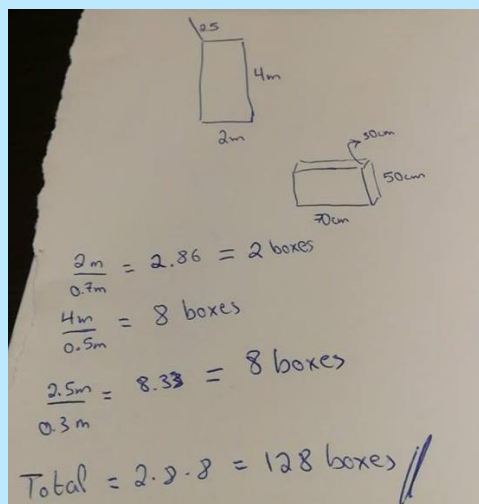 25
4m
2m
30cm
50cm
70cm
2m
0.7m
= 2.86 = 2 boxes
4m
0.5m
= 8 boxes
2.5m
0.3m
= 8.33 = 8 boxes
Total = 2.8.8 = 128 boxes